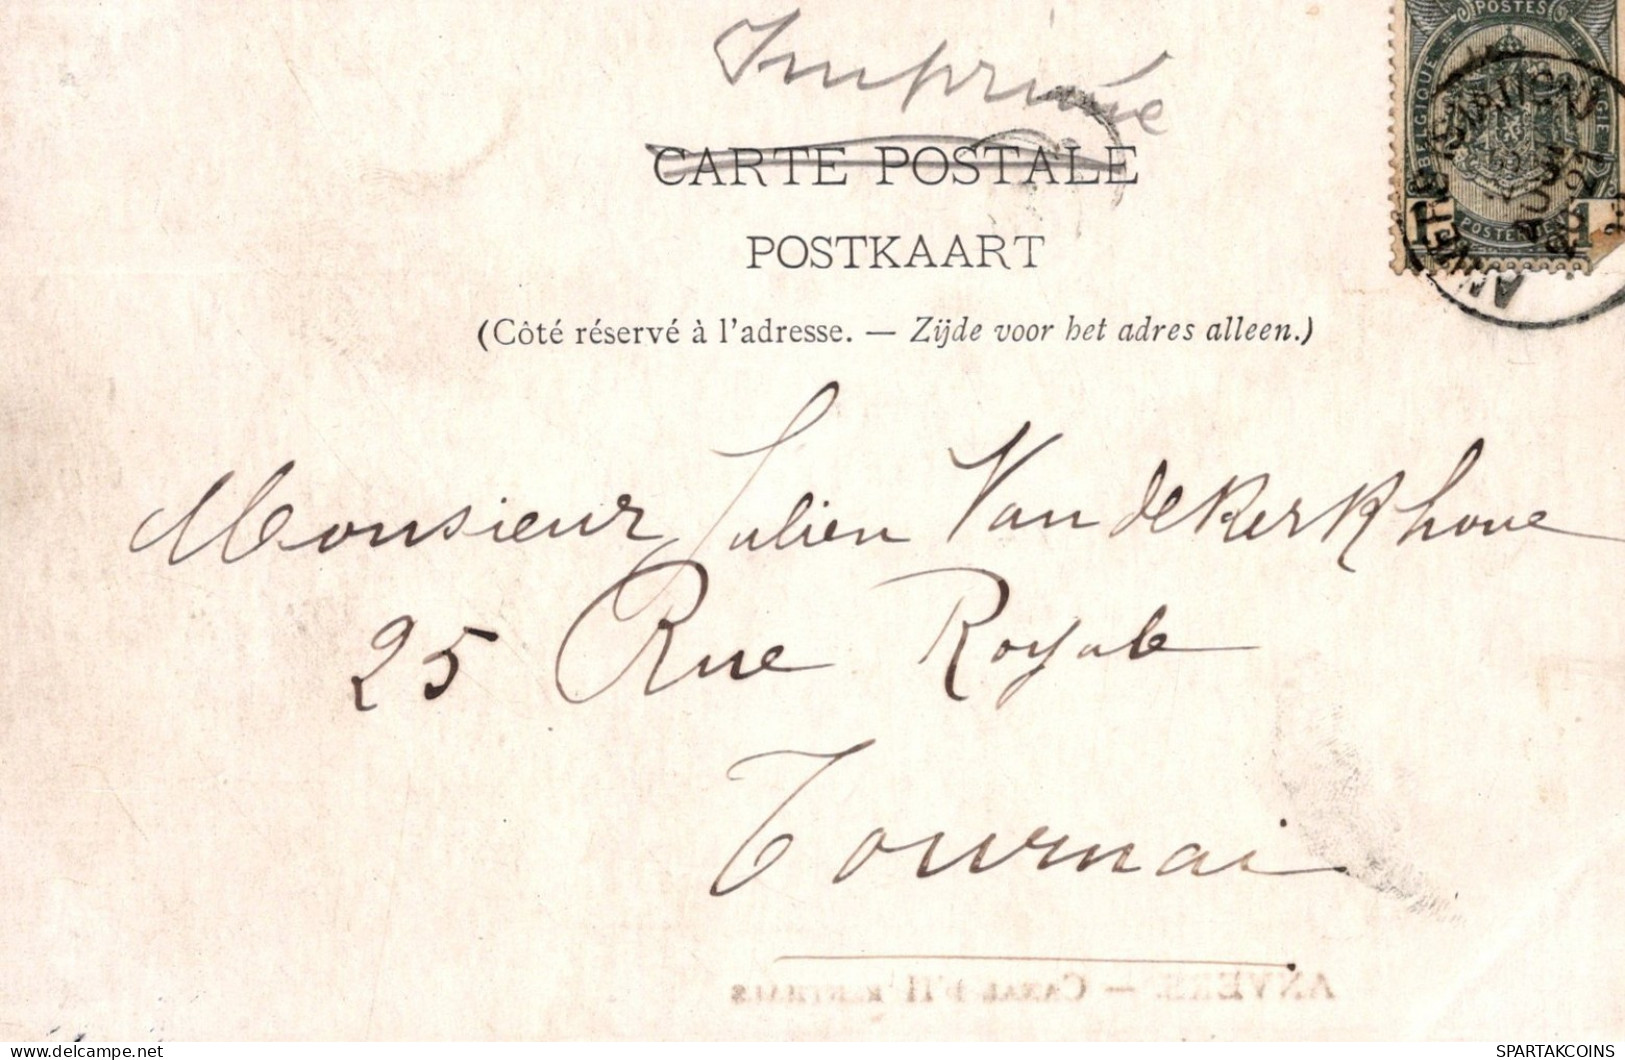 Imprimé
POSTES
BELGIQUE
BELGIË
CARTE POSTALE
1 POSTERIJEN 1
ANVERS
POSTKAART
(Côté réservé à l'adresse. — Zijde voor het adres alleen.)
Monsieur Julien Vandekerkhove
25 Rue Royale
Tournai
ANVERS. — CANAL D'HERENTHALS
delcampe.net
SPARTAKCOINS